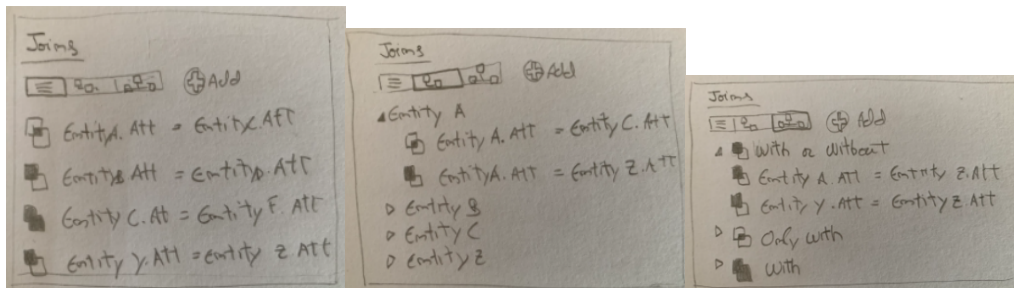 Joins
Add
Entity A. Att = Entity C. Att
Entity B Att = Entity D. Att
Entity C. At = Entity F. Att
Entity Y. Att = Entity Z Att
Joins
Add
Entity A
Entity A. Att = Entity C. Att
Entity A. Att = Entity Z. Att
Entity B
Entity C
Entity Z
Joins
Add
With or Without
Entity A. Att = Entity Z. Att
Entity Y. Att = Entity Z. Att
Only with
With